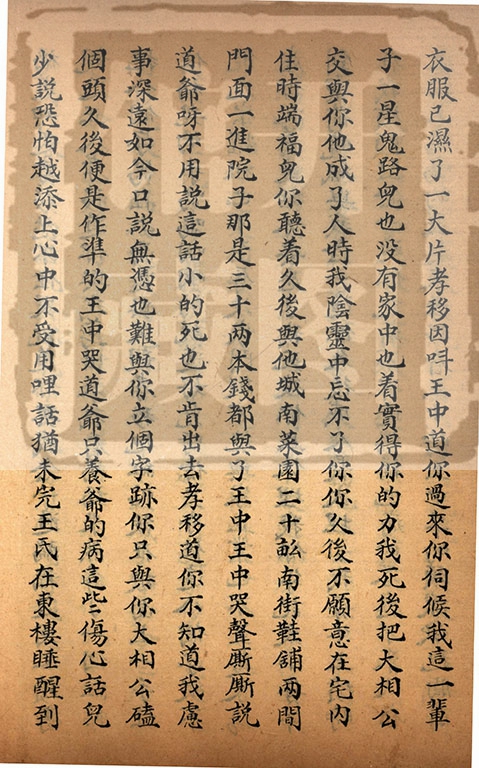 衣服已濕了一大片孝移因呌王中道你過來你伺候我這一輩
子一星鬼路兒也没有家中也着實得你的力我死後把大相公
交與你他成了人時我陰靈中忘不了你你久後不願意在宅内
住時端福兒你聽着久後與他城南菜園二十畝南街鞋舖两間
門面一進院子那是三十两本錢都與了王中王中哭聲厮厮説
道爺呀不用説這話小的死也不肯出去孝移道你不知道我慮
事深遠如今口説無憑也難與你立個字跡你只與你大相公磕
個頭久後便是作凖的王中哭道爺只養爺的病這些傷心話兒
少説恐怕越添上心中不受用哩話猶未完王氏在東樓睡醒到